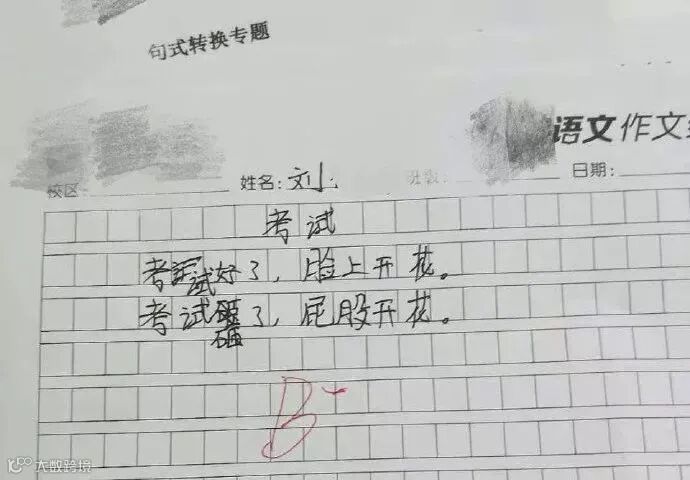 句式转换专题
语文作文
校区: 姓名: 刘小 班级: 日期:
考试
考试好了，脸上开花。
考试砸了，屁股开花。
砸
B+
大数跨境